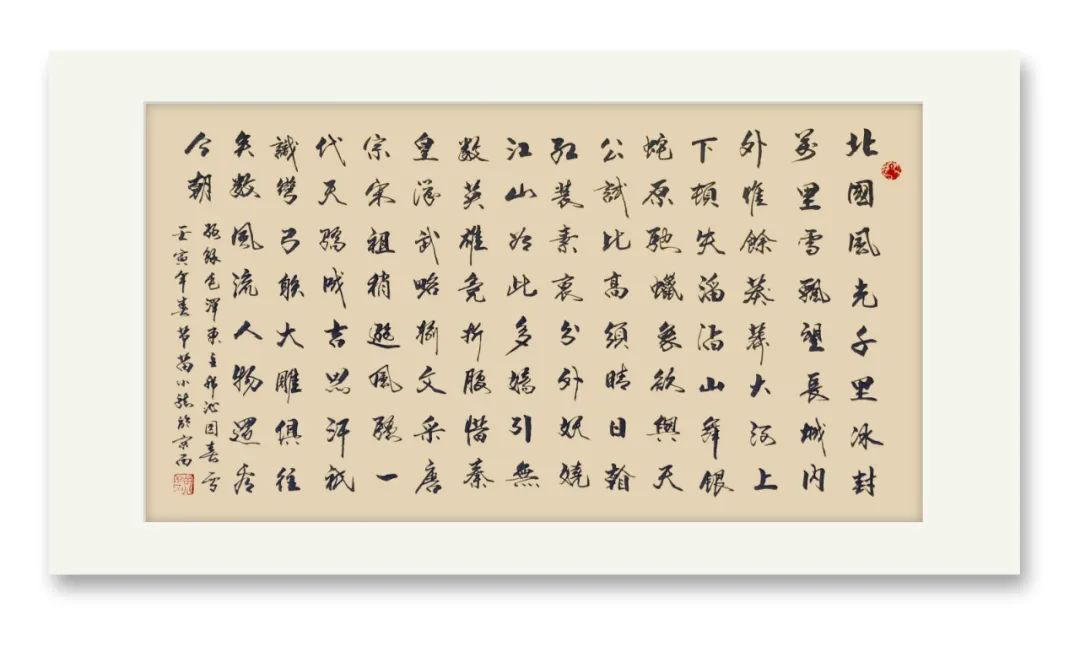 北國風光千里冰封
萬里雪飄望長城內
外惟餘莽莽大河上
下頓失滔滔山舞銀
蛇原馳蠟象欲與天
公試比高須晴日看
紅裝素裹分外妖嬈
江山如此多嬌引無
數英雄競折腰惜秦
皇漢武略輸文采唐
宗宋祖稍遜風騷一
代天驕成吉思汗祇
識彎弓射大雕俱往
矣數風流人物還看
今朝
錄毛澤東主席沁園春雪
壬寅年春節苗小龍於京西